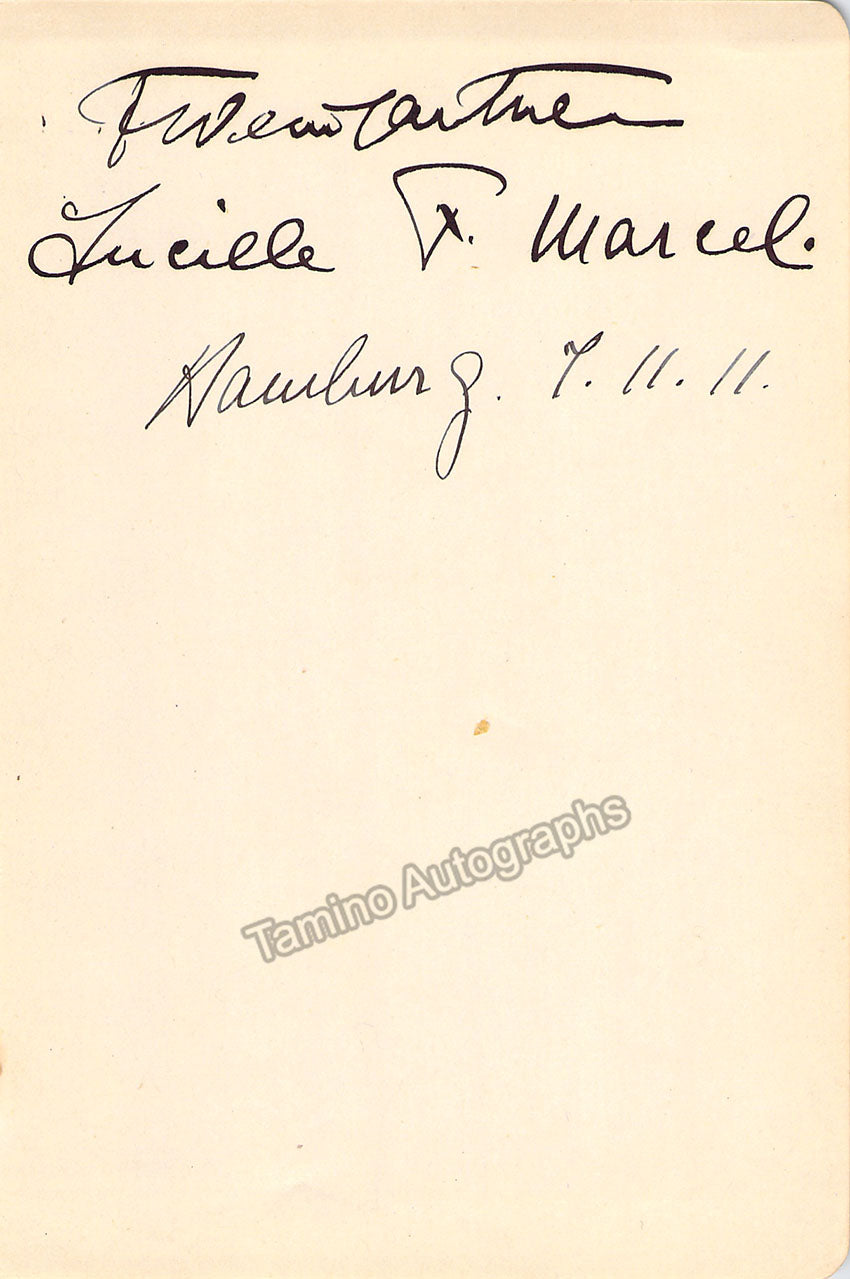 FWeingartner
Lucille F. Marcel.
Hamburg. 7. 11. 11.
Tamino Autographs